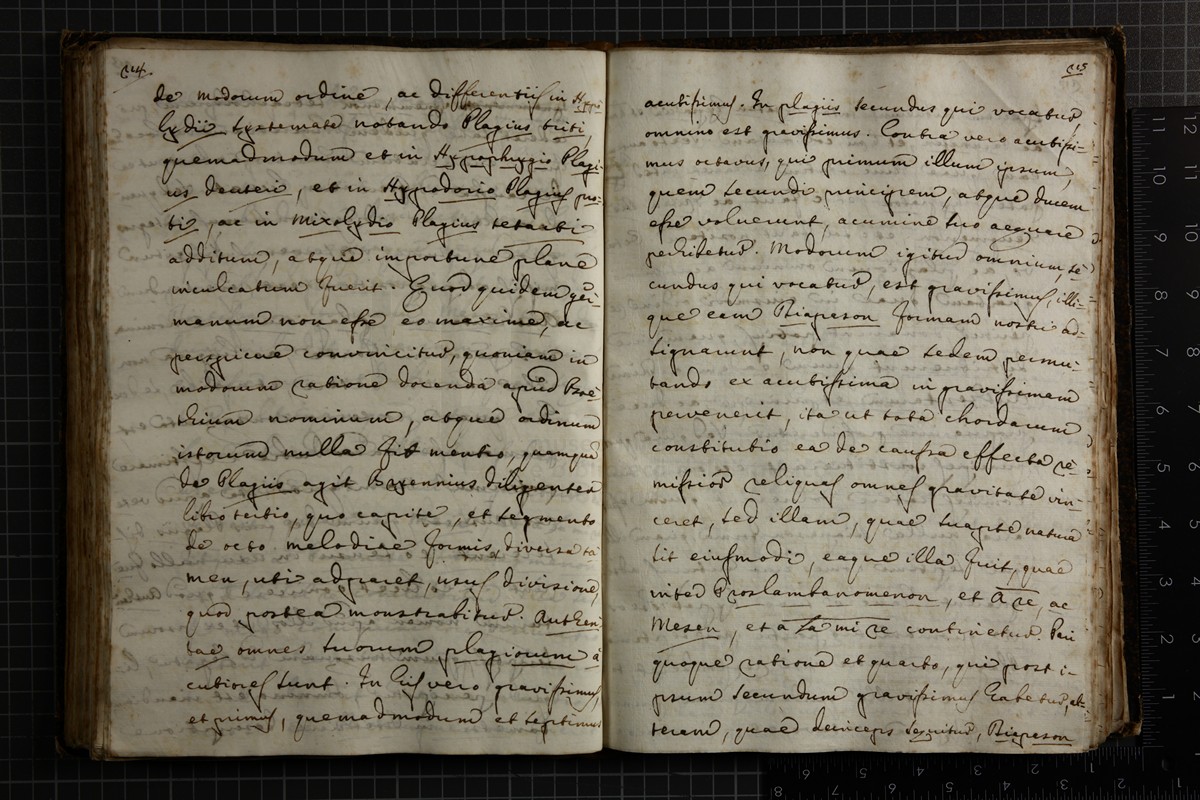 de modorum ordine, ac differentiis in Hypo
lydii systemate notando Plagius triti,
quemadmodum et in Hypophrygio Plagi-
us deuteri, et in Hypodorio Plagius pro-
ti, ac in Mixolydio Plagius tetarti
additum, atque importune plane
inculcatum fuerit. Quod quidem ger-
manum non esse eo maxime, ac
perspicue convincitur, quoniam in
modorum ratione docenda apud Boe-
thium nominum, atque ordinum
istorum nulla fit mentio, quamque
de Plagiis agit Bryennius diligenter
libro tertio, quo capite, et segmento
de octo melodiae formis, diversa ta-
men, uti adparet, usus divisione,
quod postea monstrabitur. Authen
tae omnes suorum plagiorum a
cutiores sunt. In his vero gravissimus,
et primus, quemadmodum et septimus
acutissimus. In plagiis secundus qui vocatur
omnino est gravissimus. Contra vero acutissi-
mus octavus, qui primum illum ipsum,
quem secundi principem, atque ducem
esse voluerunt, acumine suo aequare
perhibetur. Modorum igitur omnium, se
cundus qui vocatur, est gravissimus, illi-
que eam Diapason formam nostri ad-
signarunt, non quae sedem permu-
tando ex acutissima in gravissimam
pervenerit, ita ut tota chordarum
constitutio ea de caussa effecta re-
missior reliquas omnes gravitate vin-
ceret, sed illam, quae suapte natura
sit eiusmodi, eaque illa fuit, quae
inter Proslambanomenon, et A re, ac
Mesen, et a la mi re continetur. Pari
quoque ratione et quarto, qui post i-
psum secundum gravissimus habetur, al-
teram, quae deinceps sequitur, Diapason